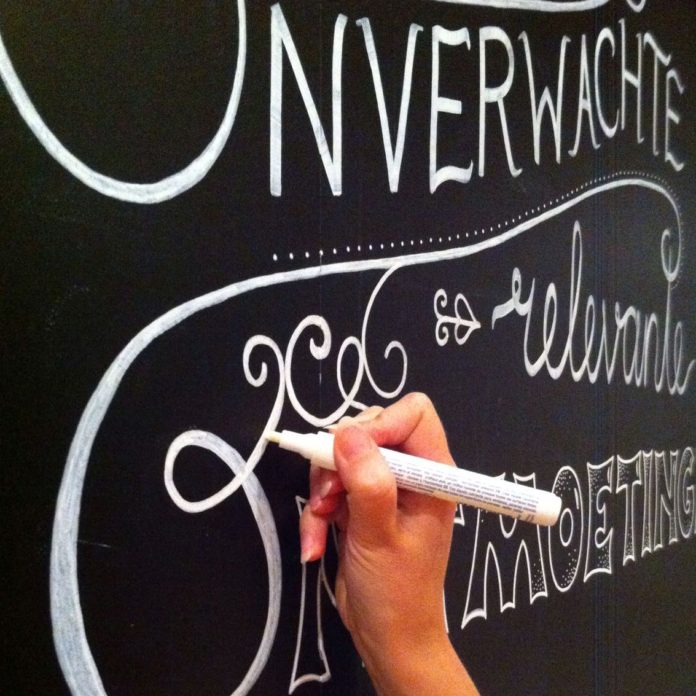 ONVERWACHTE
relevante
ONTMOETING